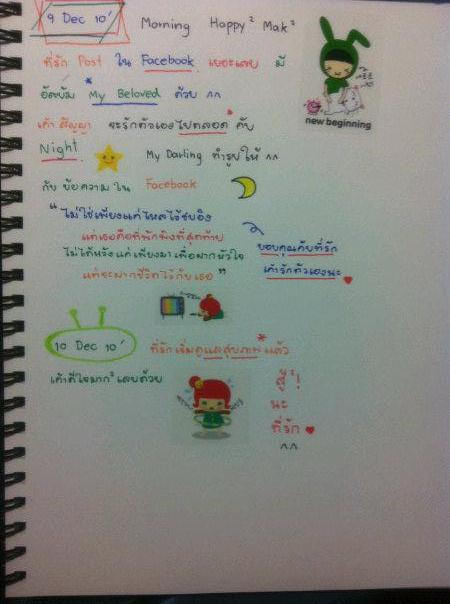 9 Dec 10' Morning Happy² Mak²
ที่รัก Post ใน Facebook เยอะเลย มี
อัลบั้ม My Beloved ด้วย ^^
เค้า สัญญา จะรักตัวเองไปตลอด คับ
new beginning
Night My Darling ทำรูปให้ ^^
กับ ข้อความ ใน Facebook
" ไม่ใช่เพียงแค่ไหล่ไว้ซบอิง
แต่เธอคือที่พักพิงที่สุดท้าย
ไม่ได้หวังแค่เพียงมาเพื่อฝากหัวใจ
แต่จะฝากชีวิตไว้กับเธอ "
ขอบคุณคับที่รัก
เค้ารักตัวเองนะ
10 Dec 10' ที่รักเริ่มดูแลสุขภาพแล้ว
เค้าดีใจมาก² เลยด้วย
สู้²!
นะ
ที่รัก
^^